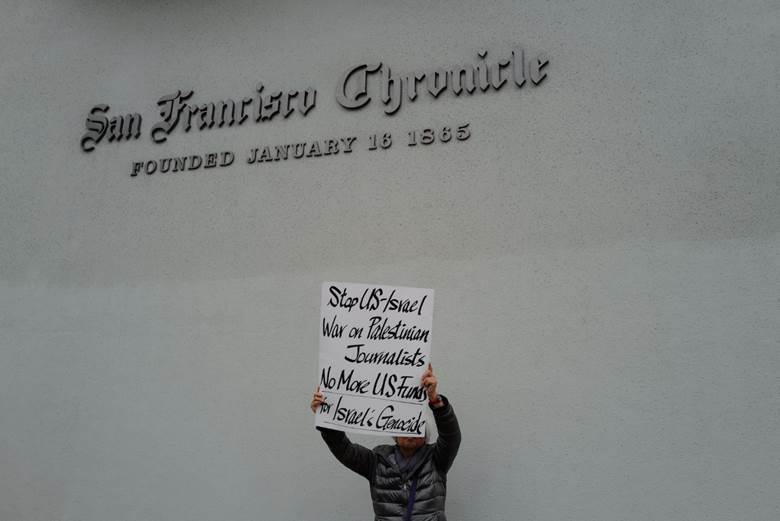 San Francisco Chronicle
FOUNDED JANUARY 16 1865
Stop US-Israel
War on Palestinian
Journalists
No More US Funds
for Israel's Genocide